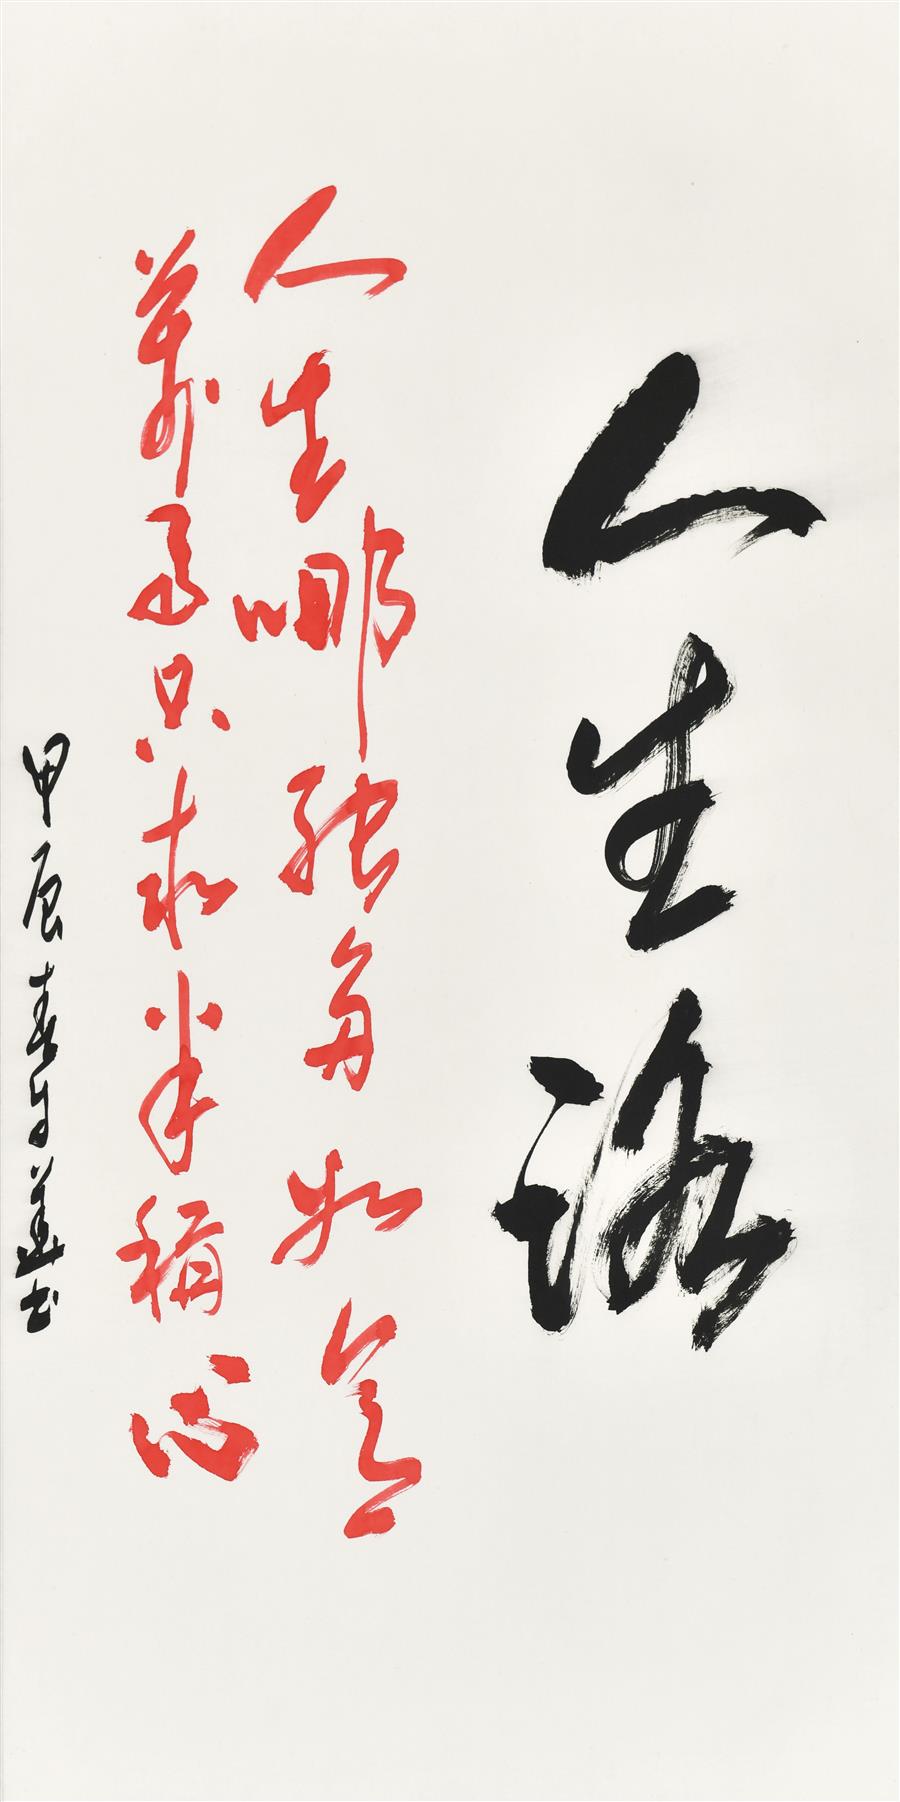 人生路
人生哪能多如意
萬事只求半稱心
甲辰春書